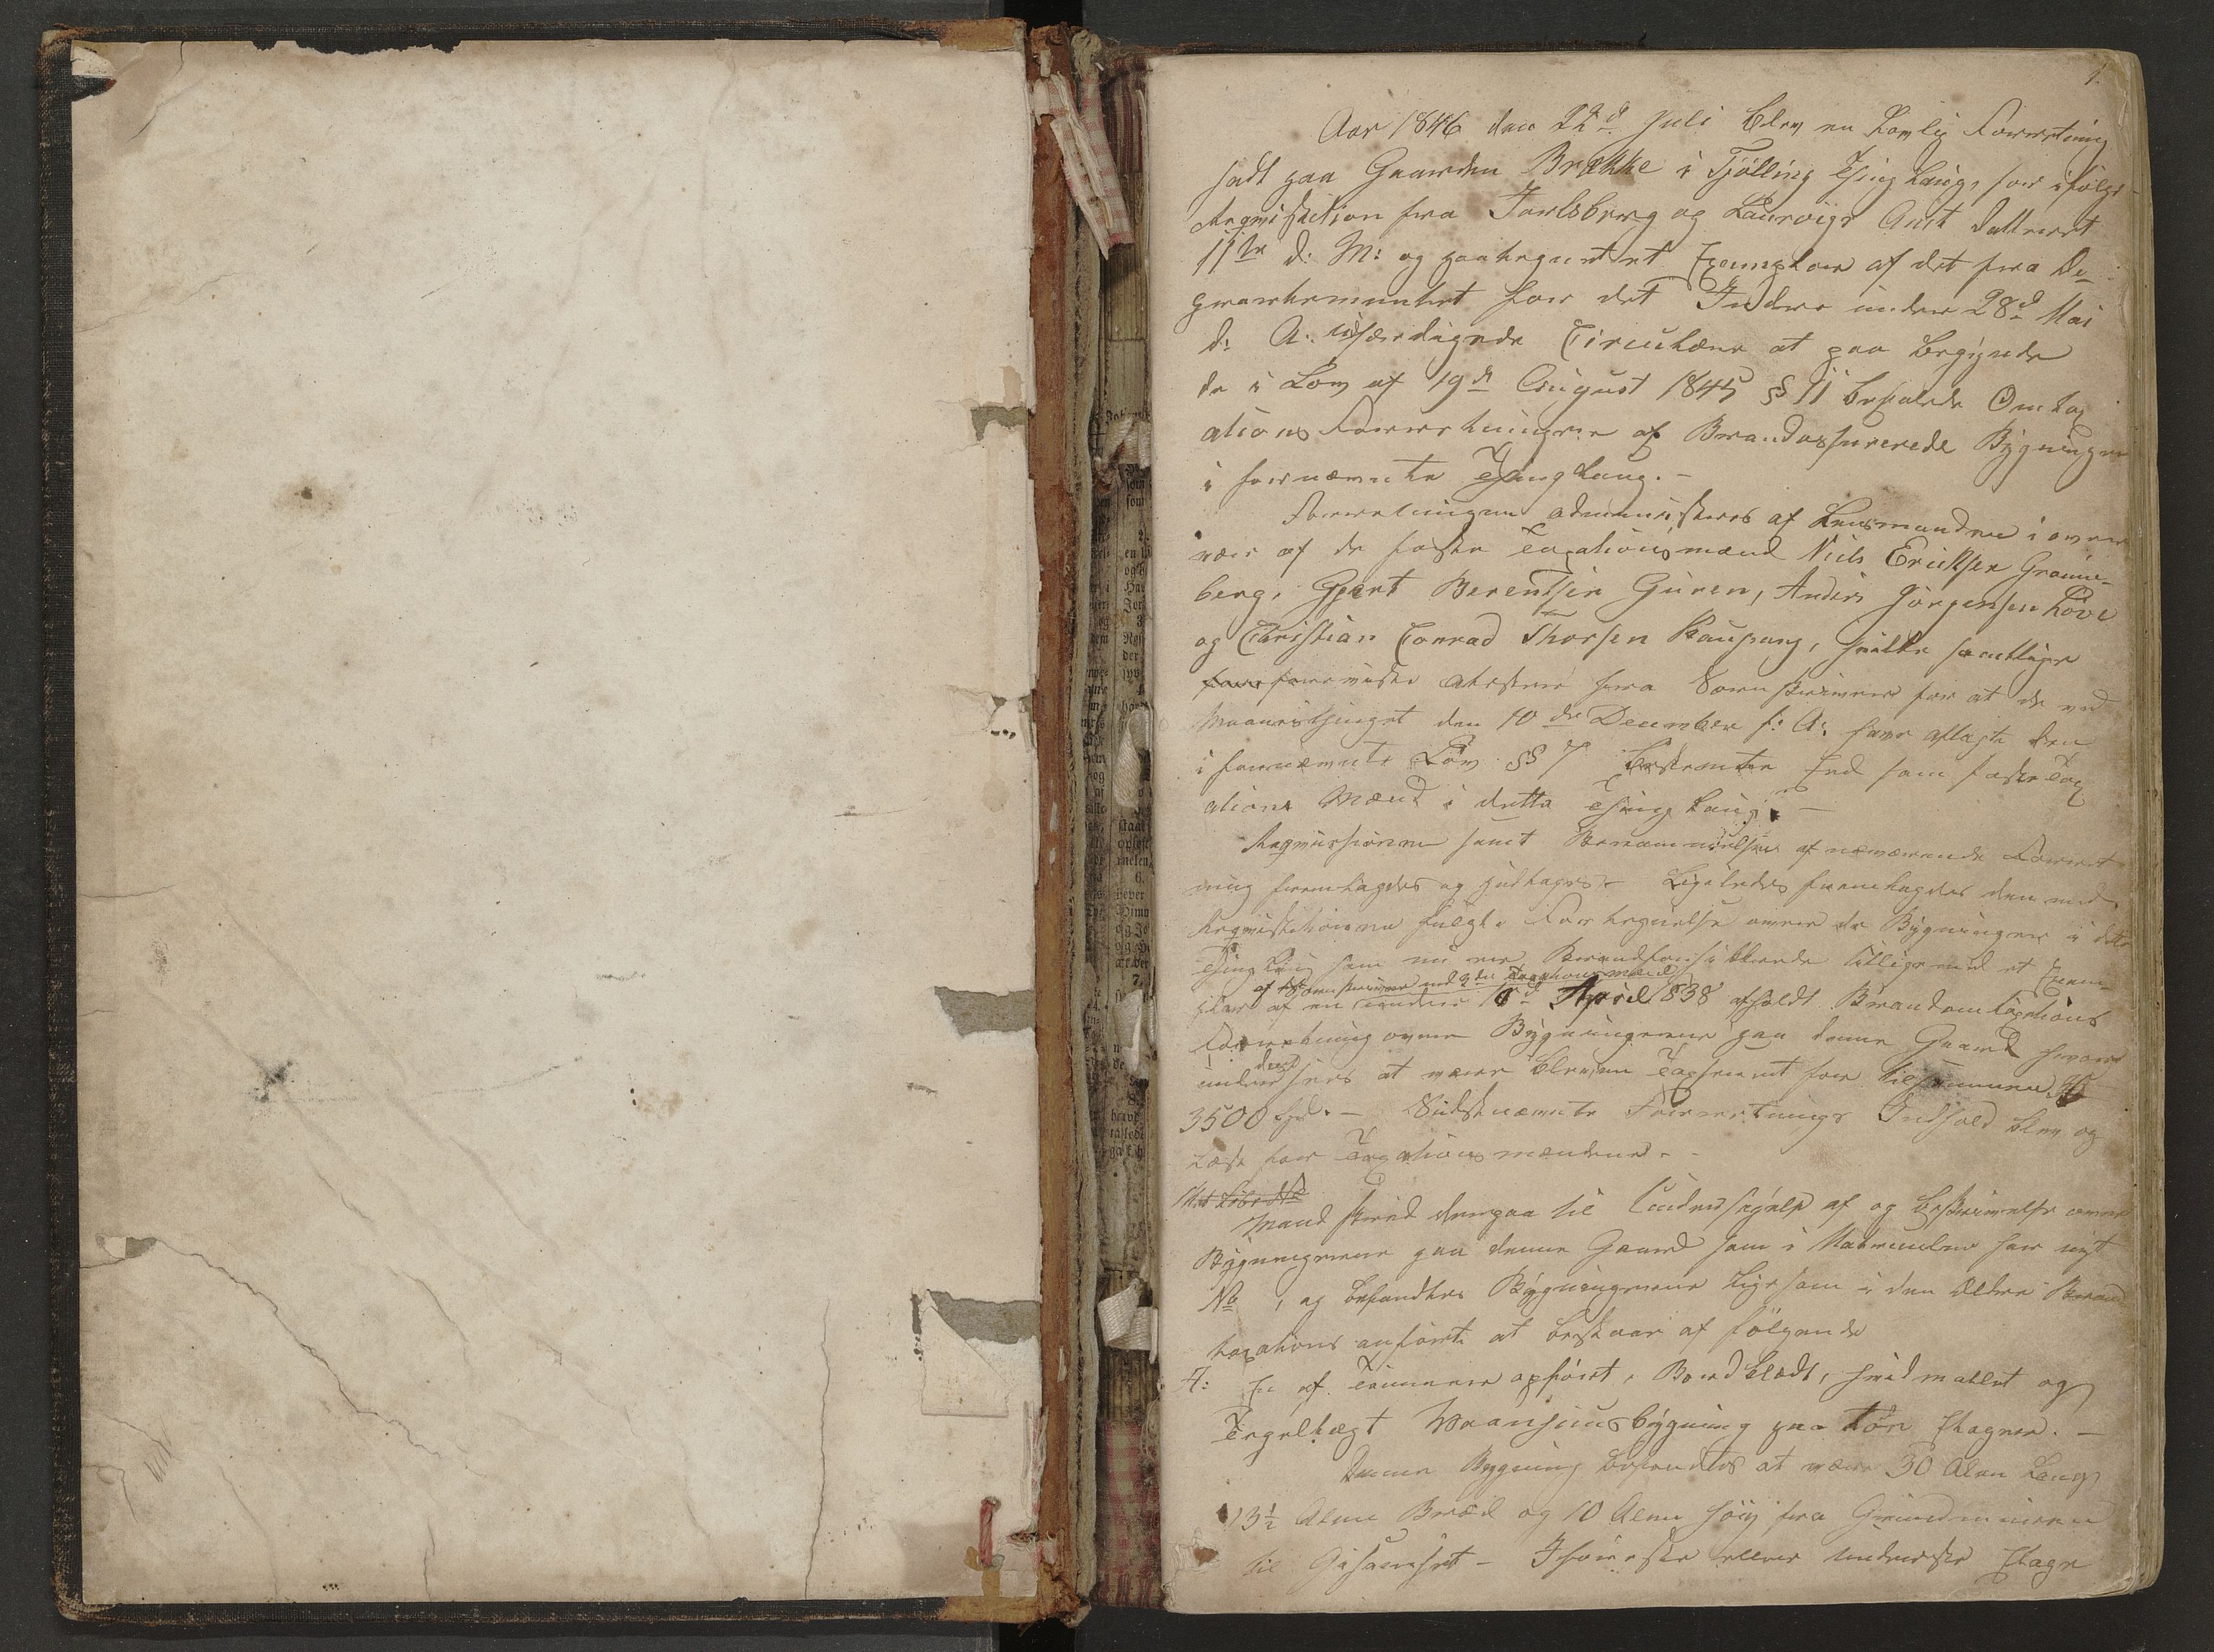 1.
Aar 1846 den 22d Juli blev en Lovlig Forretning
holdt paa Gaarden Brække i Tjölling Thinglaug, som ifölge
Requisition fra Jarlsberg og Laurvigs Amt datteret
11te d: M: og paategnet et Exemplar af det fra De-
partementet for det Indre under 28d Mai
d: A: udfærdigede Circulære at paa begynde
de i Lov af 19de August 1845 § 11 befalede Omtax
ations Forretninger af Brandassurerede Bygninger
i fornævnte Thinglaug. -
Forretningen administreres af Lensmanden i over
vær af de faste Taxationsmænd Niels Eriksen Grønne-
berg, Gjert Berentsen Guren, Anders Jörgensen Löve
og Christian Conrad Thorsen Kaupang, hvilke samtlige
foreviiste Attester fra Sorenskriveren for at de ved
Maanedsthinget den 10de December f: A: have aflagt den
i fornævnte Lov § 7 bestemte Eed som faste Tax
ations Mænd i dette Thinglaug. -
Requisitionen samt Berammelsen af nærværende Forret
ning fremlagdes og - Ligeledes fremlagdes den med
Requisitionen fulgte Fortegnelse over de Bygninger i dette
Thinglaug som nu ere Brandforsikkrede tilligemed et Exem-
af Sorenskriver med 2de Taxationsmænd
plar af en under 10d April 1838 afholdt Brandomtaxations
Forretning over Bygningerne paa denne Gaard hvoraf
den
under sees at være bleven Taxseret for tilsammen
3500 Spd. - Sidstnævnte Forretnings Indhold blev og
læst for Taxationsmændene. -
Mat Löbe No
Mand skred derpaa til Undersögelse af og beskrivelse over
Bygningerne paa denne Gaard som i Matriculen har nyt
No , og befandtes Bygningerne ligesom i den ældre Brand
taxations anförte at bestaae af fölgende
A: En af Tømmer opfört, Bordklædt, hvidmallet og
Tegelhægt Vaaningsbygning paa toe Etager. -
Denne Bygning befandtes at være 30 Alen Lang
13½ Alen Bred og 10 Alen höi fra Grundmuren
til Gesimset - I förste eller Underste Etage